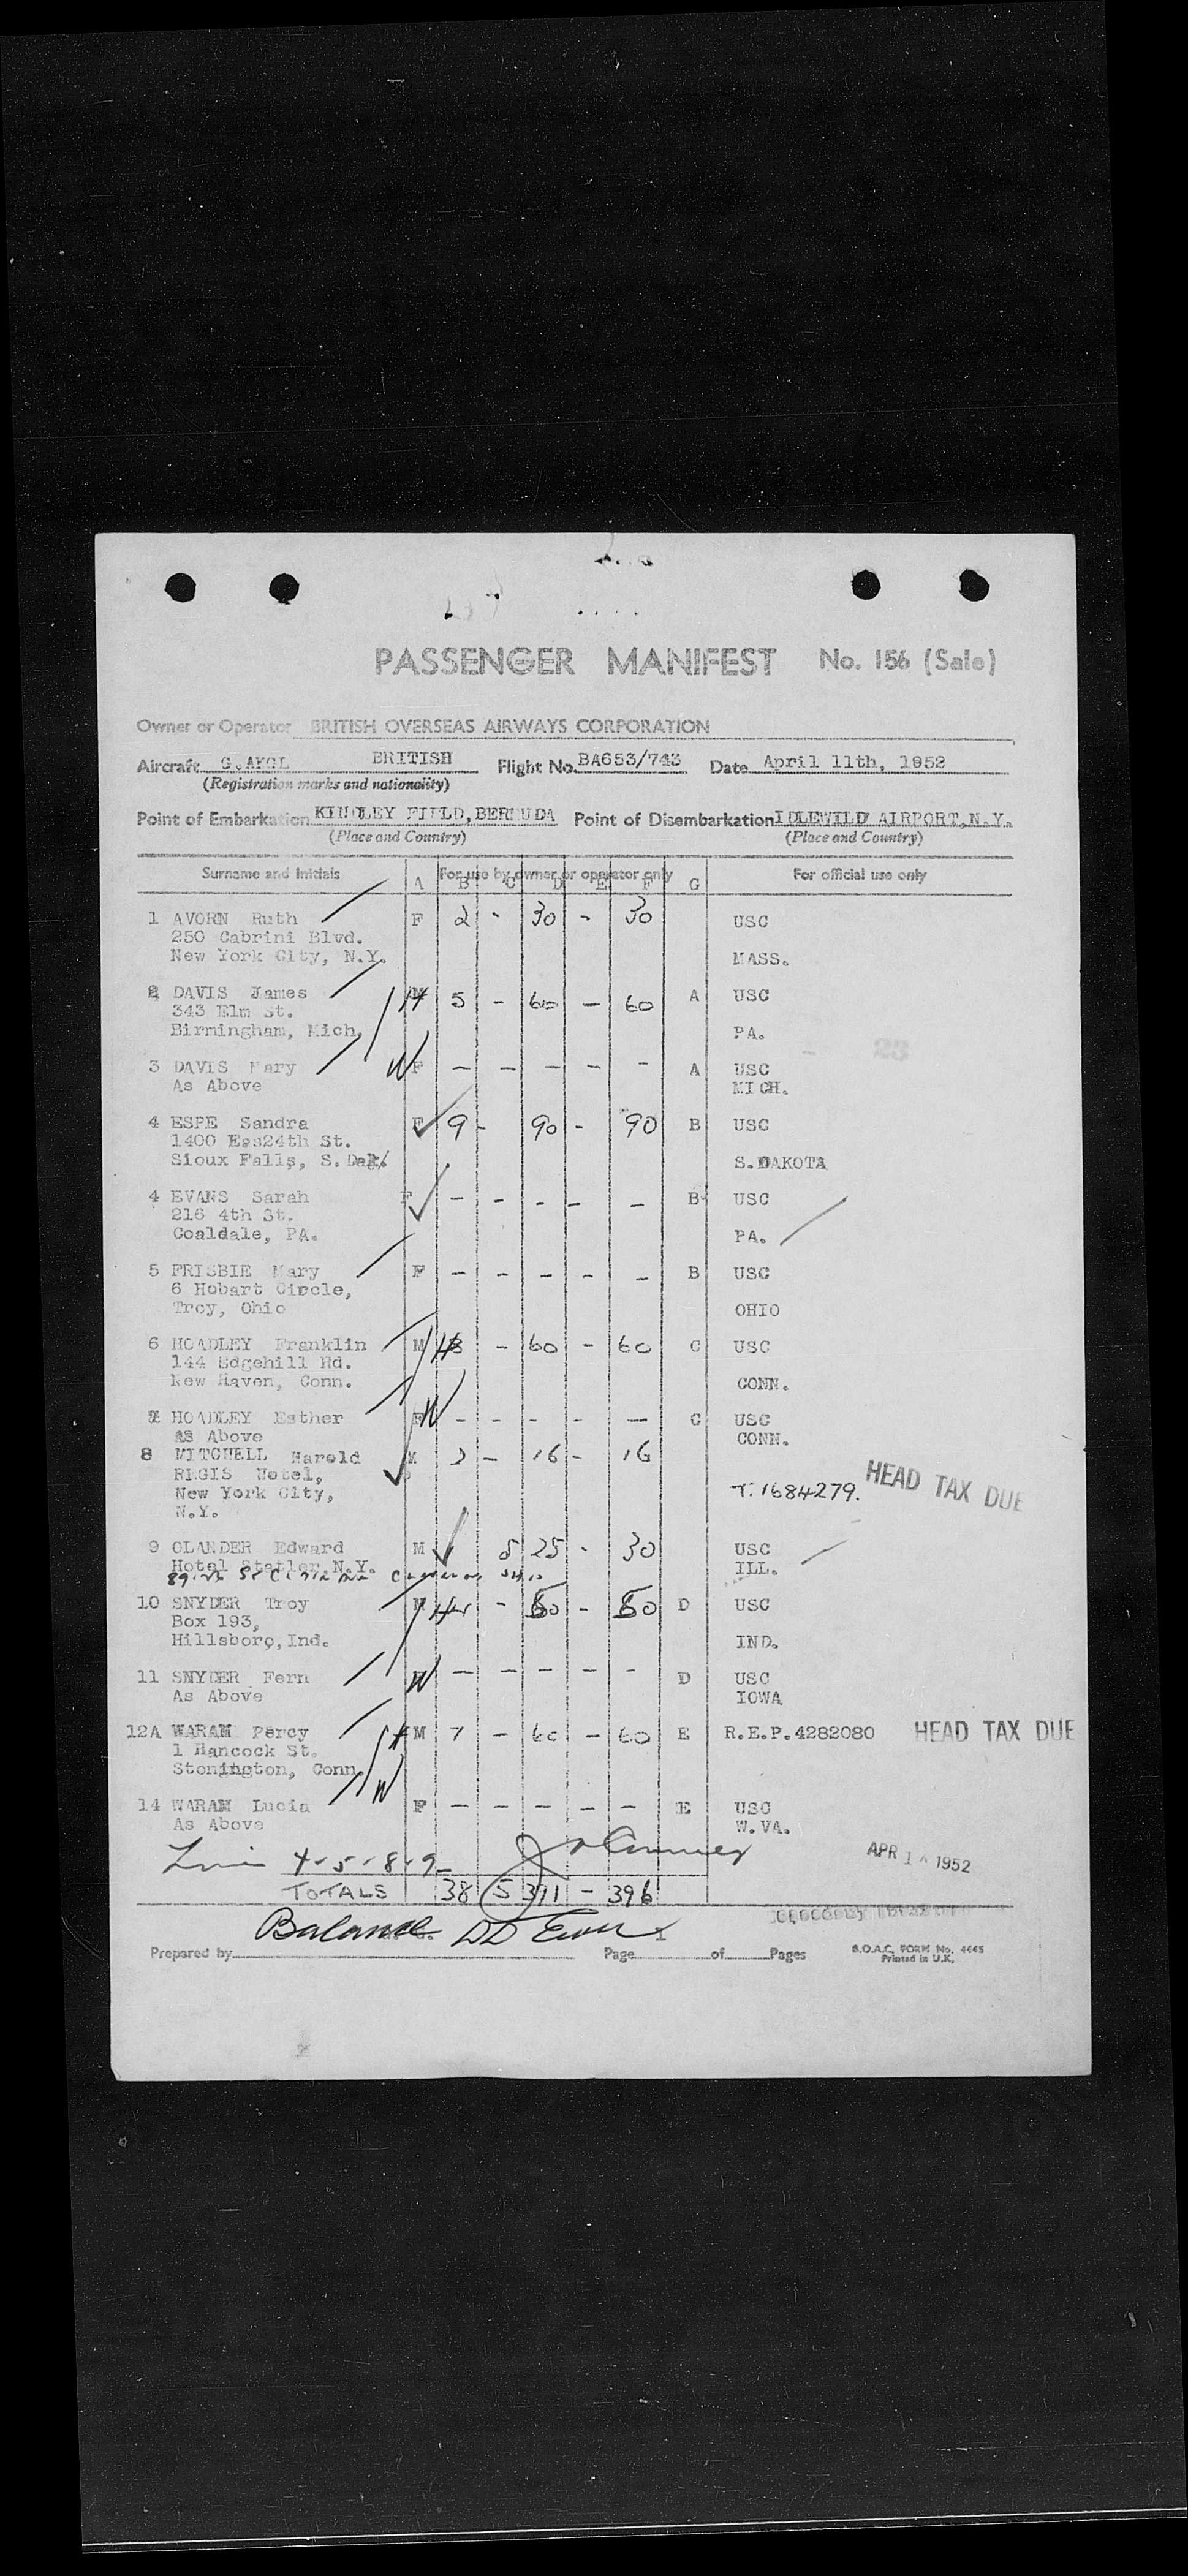 PASSENGER MANIFEST No. 156 (Sale)
Owner or Operator BRITISH OVERSEAS AIRWAYS CORPORATION
Aircraft BRITISH Flight No. BA653/743 Date April 11th, 1952
(Registration marks and nationality)
Point of Embarkation KINDLEY FIELD, BERMUDA Point of Disembarkation IDLEWILD AIRPORT, N.Y.
(Place and Country) (Place and Country)
Surname and Initials For use by owner or operator only For official use only
A B C D E F G
1 AVORN Ruth F 2 - 30 - 30 USC
250 Cabrini Blvd.
New York City, N.Y. MASS.
2 DAVIS James M H 5 - 60 - 60 A USC
343 Elm St.
Birmingham, Mich, PA.
3 DAVIS Mary W F - - - - - A USC
As Above MICH.
4 ESPE Sandra F 9 - 90 - 90 B USC
1400 Eas24th St.
Sioux Falls, S. Dak. S. DAKOTA
4 EVANS Sarah F - - - - - B USC
216 4th St.
Coaldale, PA. PA.
5 FRISBIE Mary F - - - - - B USC
6 Hobart Circle,
Troy, Ohio OHIO
6 HOADLEY Franklin M H 8 - 60 - 60 C USC
144 Edgehill Rd.
New Haven, Conn. CONN.
7 HOADLEY Esther F W - - - - - C USC
As Above CONN.
8 MITCHELL Harold M 2 - 16 - 16
REGIS Hotel,
New York City, T. 1684279. HEAD TAX DUE
N.Y.
9 OLANDER Edward M 5 25 - 30 USC
Hotel Statler, N.Y. ILL.
10 SNYDER Troy M H - 50 - 50 D USC
Box 193,
Hillsboro, Ind. IND.
11 SNYDER Fern W - - - - - D USC
As Above IOWA
12A WARAM Percy H M 7 - 60 - 60 E R.E.P. 4282080 HEAD TAX DUE
1 Hancock St.
Stonington, Conn. W
14 WARAM Lucia F - - - - - E USC
As Above W. VA.
4 - 5 - 8 - 9 - APR 1 1952
TOTALS 38 5 391 - 396
Balance
Prepared by Page 1 of Pages B.O.A.C. FORM No. 4445
Printed in U.K.